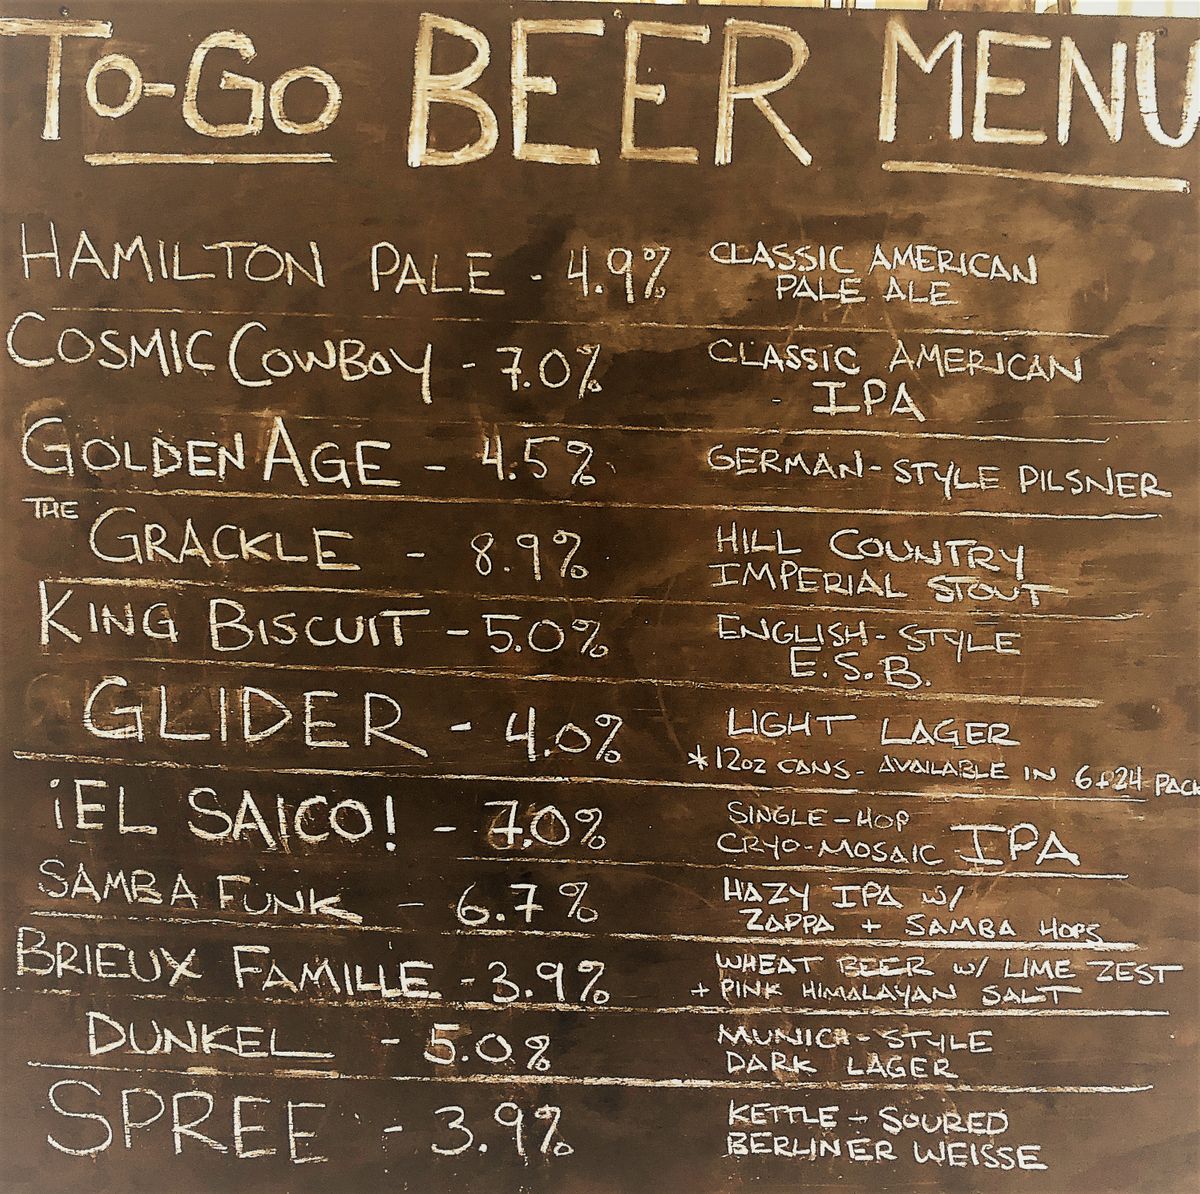 To-Go BEER MENU
HAMILTON PALE - 4.9% CLASSIC AMERICAN
PALE ALE
COSMIC COWBOY - 7.0% CLASSIC AMERICAN
- IPA
GOLDEN AGE - 4.5% GERMAN-STYLE PILSNER
THE
GRACKLE - 8.9% HILL COUNTRY
IMPERIAL STOUT
KING BISCUIT - 5.0% ENGLISH-STYLE
E.S.B.
GLIDER - 4.0% LIGHT LAGER
*12oz CANS - AVAILABLE IN 6+24 PACK
¡EL SAICO! - 7.0% SINGLE-HOP
CRYO-MOSAIC IPA
SAMBA FUNK - 6.7% HAZY IPA w/
ZAPPA + SAMBA HOPS
BRIEUX FAMILLE - 3.9% WHEAT BEER w/ LIME ZEST
+ PINK HIMALAYAN SALT
DUNKEL - 5.0% MUNICH-STYLE
DARK LAGER
SPREE - 3.9% KETTLE-SOURED
BERLINER WEISSE